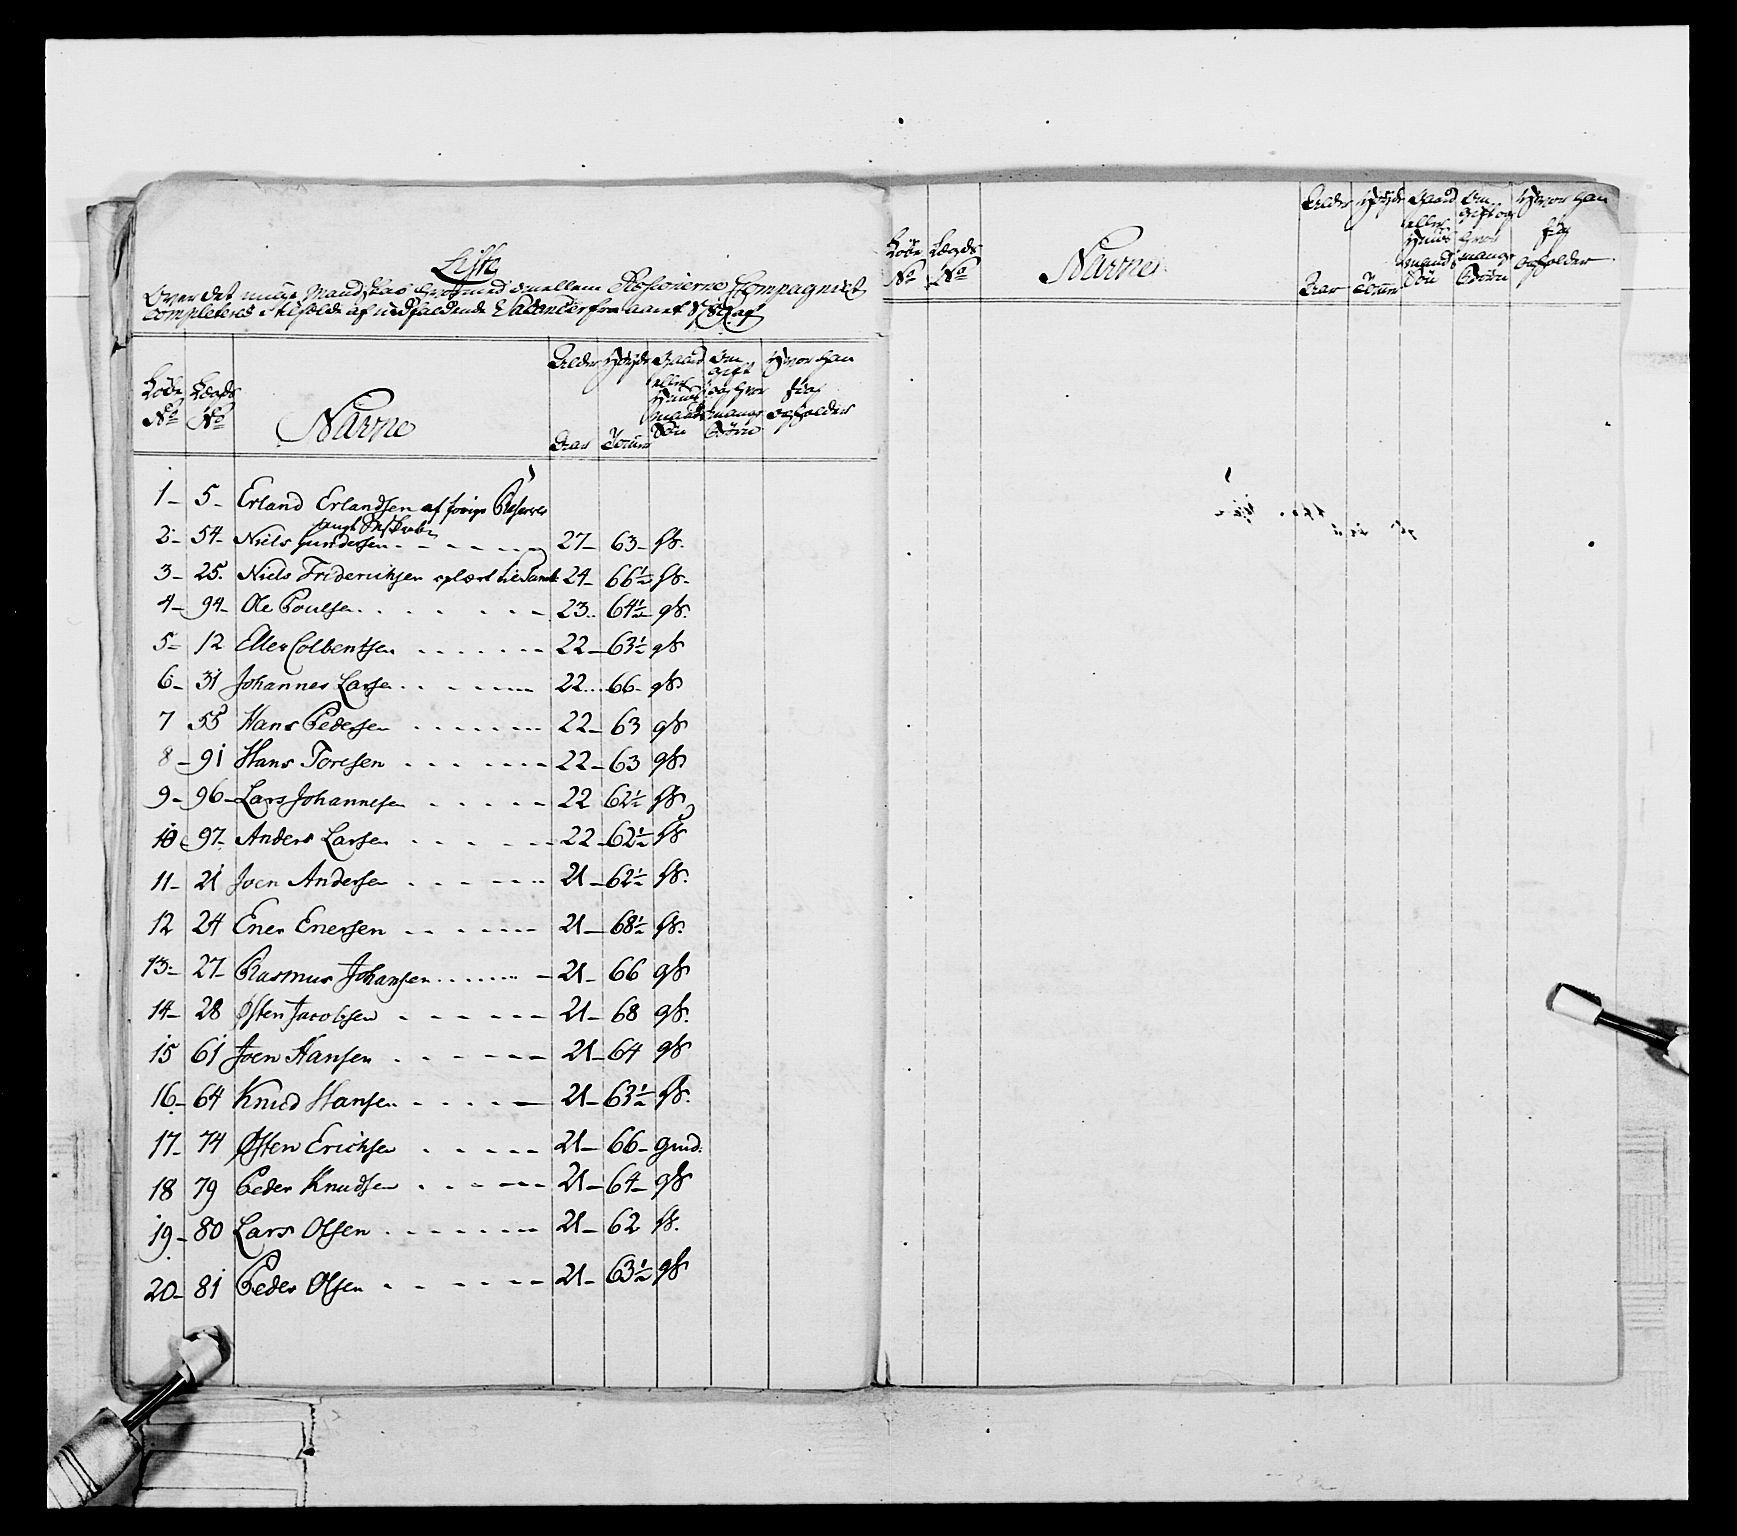 Liste
Over det unge Mandskab hvormed imellem Reserverne Compagniet
Completeres i tilfælde af indfaldende Vacancer fra
Løbe No
Lægds No
Navne
Alder Aar
Høyde Tomme
Gaard eller Huusmands Søn
Om gift og hvor mange Børn
Hvor han sig opholder
1 - 5 - Erland Erlandsen af forige Reserver
2 - 54 - Niels Gundersen 27 - 63 - ℔.
3 - 25. Niels Friderichsen oplært til 24 - 66½ ℔.
4 - 94 - Ole Poulsen 23 - 64½ g℔.
5 - 12 Eller Colbentsen 22 - 63½ g℔
6 - 31 Johannes Larsen 22 - 66 - g℔
7 55 Hans Pedersen 22 - 63 g℔
8 - 91 Hans Toresen 22 - 63 g℔
9 - 96 - Lars Johannesen 22 62½ ℔
10 97 - Anders Larsen 22 - 62½ ℔
11 - 21 Joen Andersen 21 - 62½ ℔.
12 24 Ener Enersen 21 - 68½ ℔.
13 - 27 - Rasmus Johansen 21 - 66 g℔
14 - 28 Østen Jacobsen 21 - 68 g℔.
15 61 Joen Hansen 21 - 64 g℔
16 - 64 Knud Hansen 21 - 63½ ℔.
17 - 74 Østen Erichsen 21 - 66 - gmd.
18 79 Peder Knudsen 21 - 64 - g℔
19 - 80 Lars Olsen 21 - 62 ℔.
20 - 81 Peder Olsen 21 - 63½ g℔
Løbe No
Lægds No
Navne
Alder Aar
Høyde Tomme
Gaard eller Huusmands Søn
Om gift og hvor mange Børn
Hvor han sig opholder